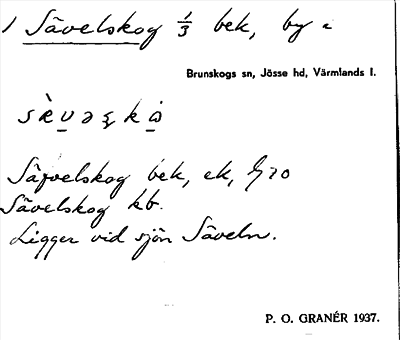 1 Sävelskog 1/3 bek, by i
Brunskogs sn, Jösse hd, Värmlands l.
Säfvelskog bek, ek,
Sävelskog kb.
Ligger vid sjön Säveln.
P. O. GRANÉR 1937.